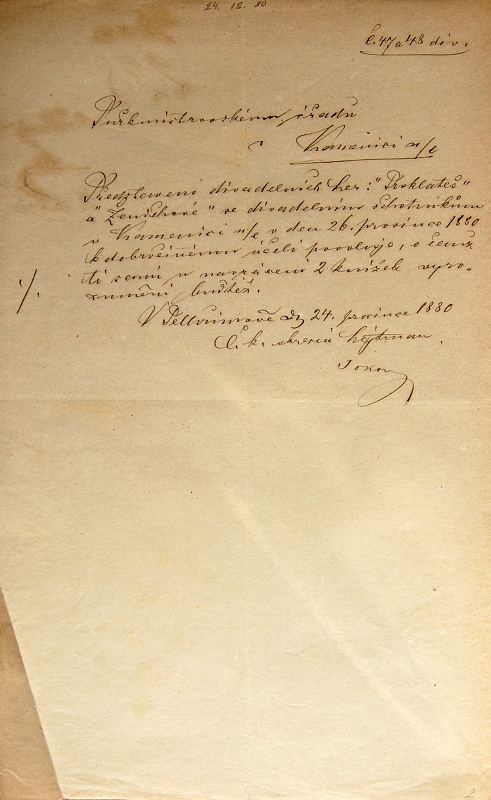 24. 12. 80
Č. 47 a 48 div.
Purkmistrovskému úřadu
v Kamenici n/L
Představení divadelních her: "Proklatec"
a "Ženichové" se divadelním ochotníkům
v Kamenici n/L v den 26. prosince 1880
k dobročinnému účeli povoluje, o čemž
ti samí u navrácení 2 knížek vyro-
zuměni buďtež.
./.
V Pelhřimově dne 24. prosince 1880
C. k. okresní hejtman
2